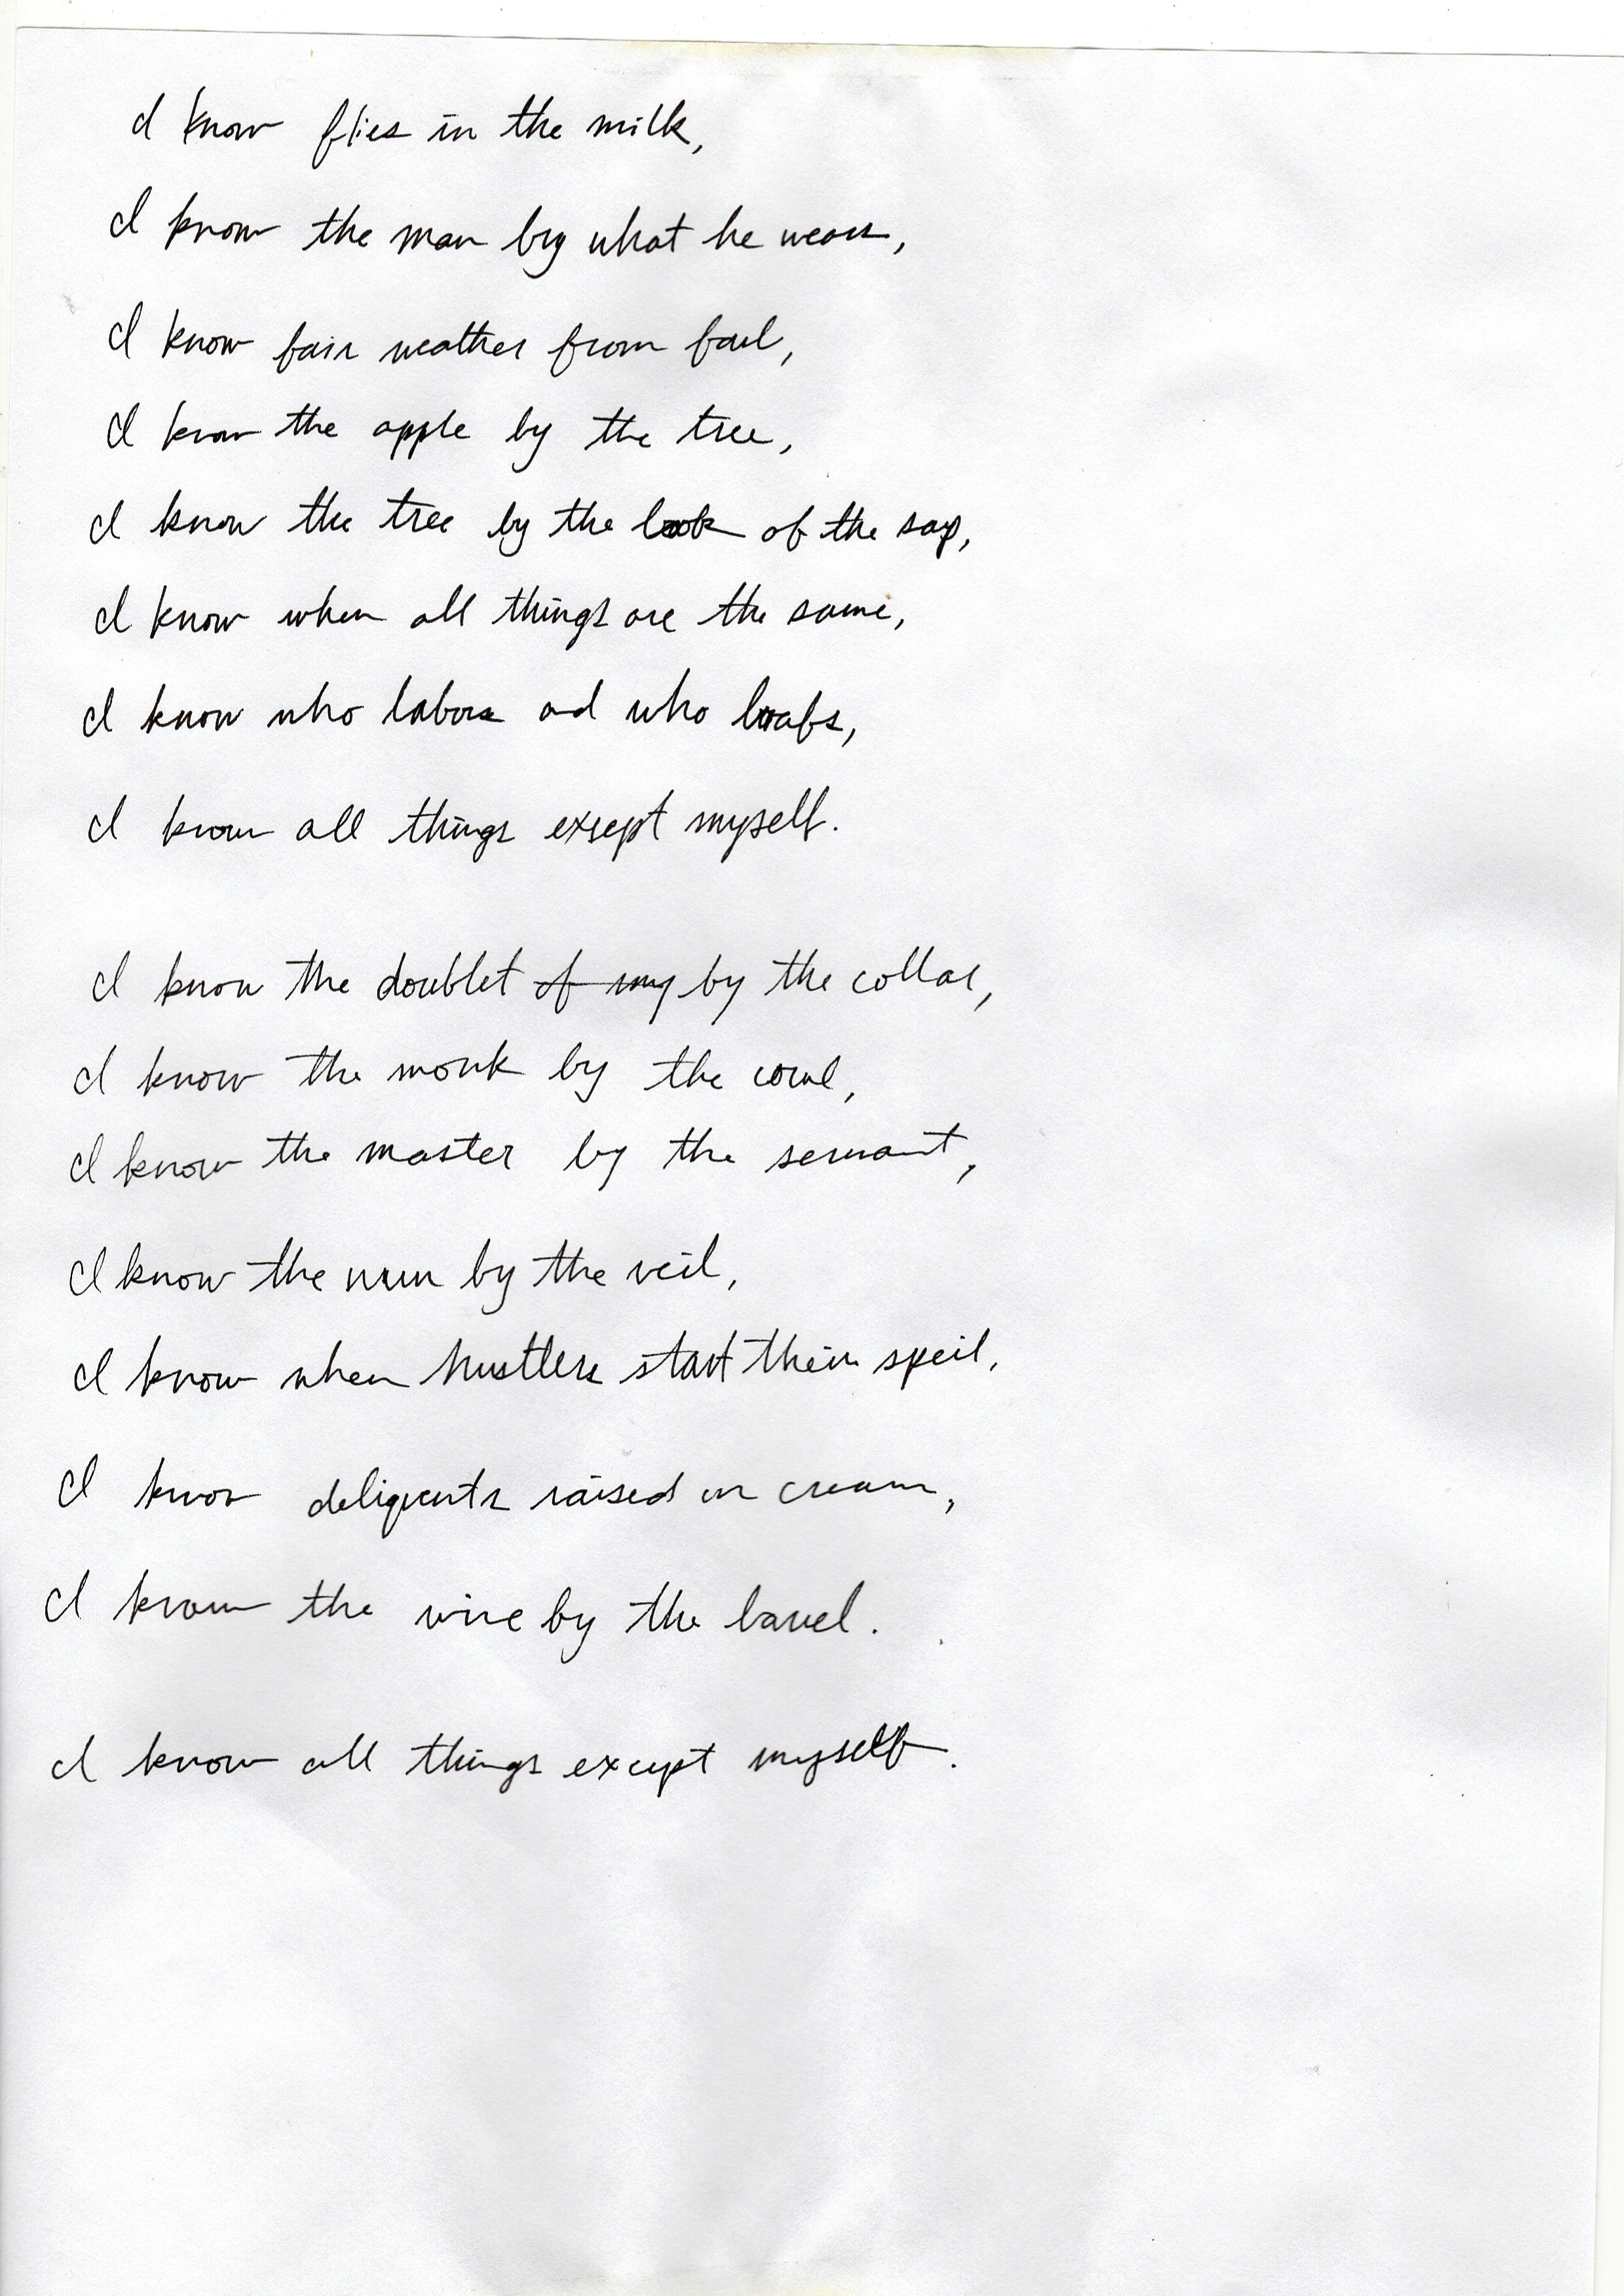 I know flies in the milk,
I know the man by what he wears,
I know fair weather from foul,
I know the apple by the tree,
I know the tree by the look of the sap,
I know when all things are the same,
I know who labors and who loafs,
I know all things exsept myself.
I know the doublet of my by the collar,
I know the monk by the cowl,
I know the master by the servant,
I know the nun by the veil,
I know when hustlers start their speil,
I know deliquents raised on cream,
I know the wine by the barrel.
I know all things except myself.